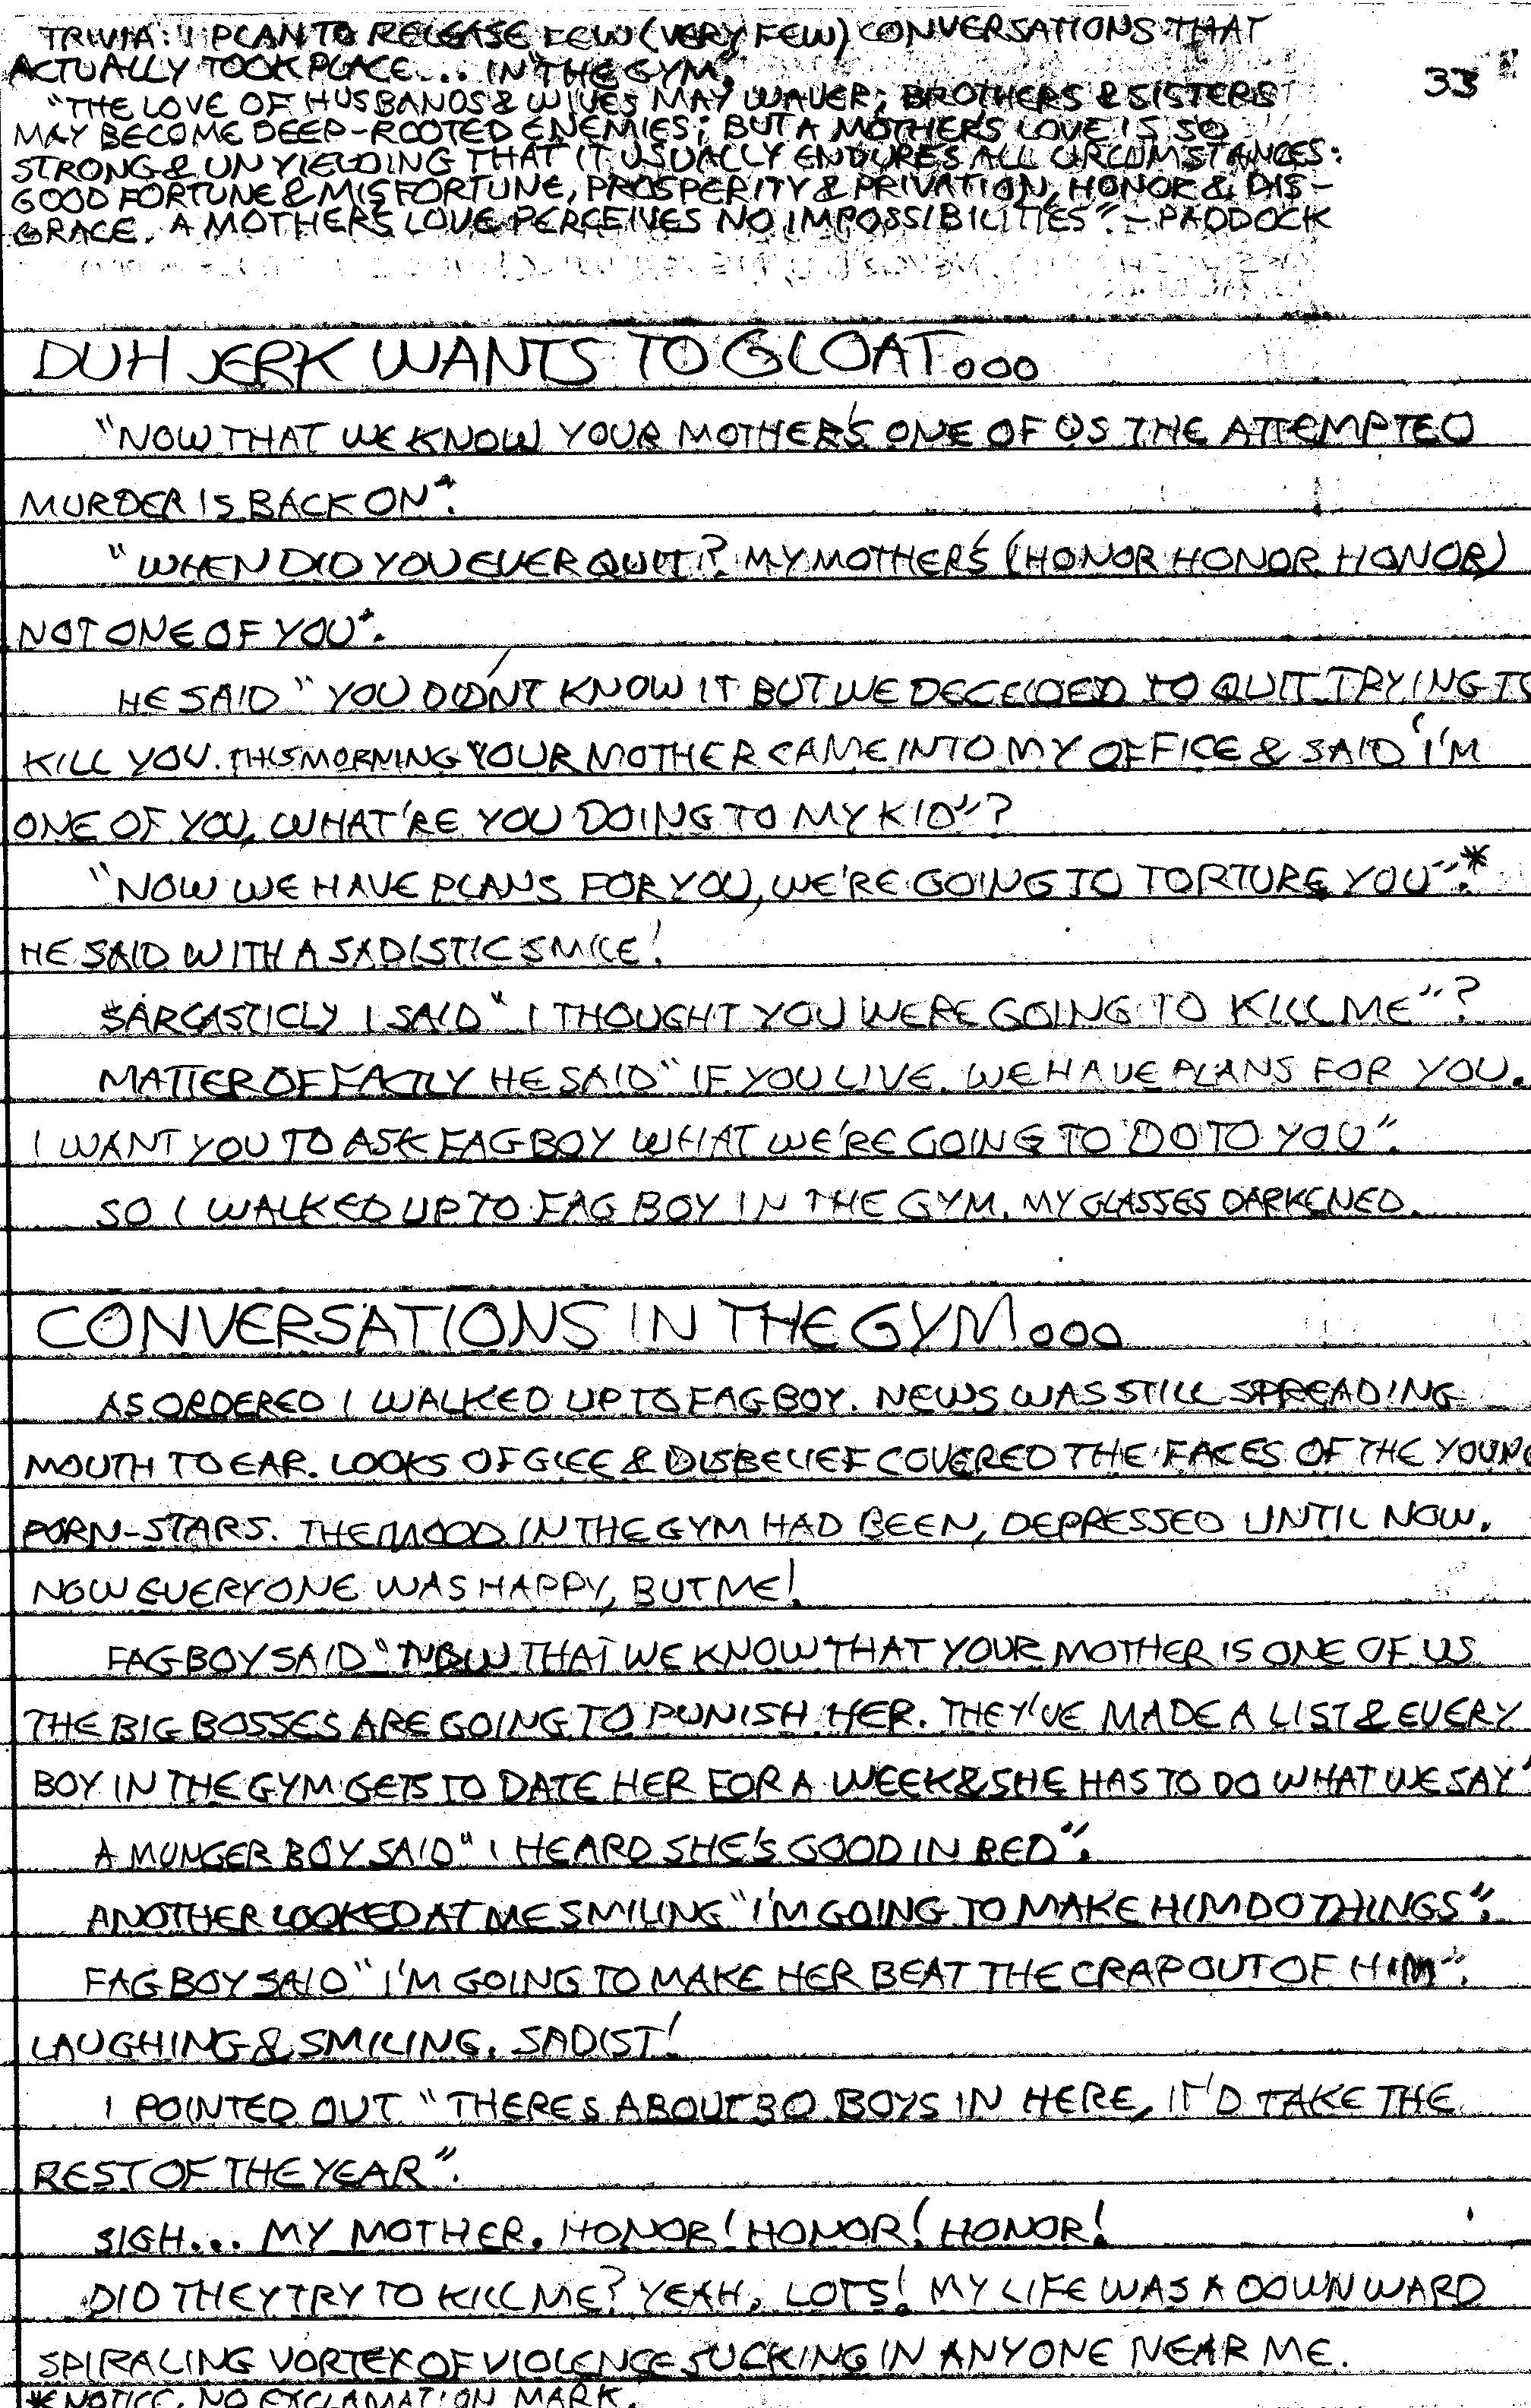 TRIVIA: I PLAN TO RELEASE FEW (VERY FEW) CONVERSATIONS THAT
ACTUALLY TOOK PLACE... IN "THE GYM".
33
"THE LOVE OF HUSBANDS & WIVES MAY WAVER; BROTHERS & SISTERS
MAY BECOME DEEP-ROOTED ENEMIES; BUT A MOTHERS LOVE IS SO
STRONG & UNYIELDING THAT IT USUALLY ENDURES ALL CIRCUMSTANCES:
GOOD FORTUNE & MISFORTUNE, PROSPERITY & PRIVATION, HONOR & DIS-
GRACE. A MOTHERS LOVE PERCEIVES NO IMPOSSIBILITIES". - PADDOCK
DUH JERK WANTS TO GLOAT...
"NOW THAT WE KNOW YOUR MOTHER'S ONE OF US THE ATTEMPTED
MURDER IS BACK ON".
"WHEN DID YOU EVER QUIT? MY MOTHER'S (HONOR HONOR HONOR)
NOT ONE OF YOU".
HE SAID "YOU DIDN'T KNOW IT BUT WE DECEIDED TO QUIT TRYING TO
KILL YOU. THIS MORNING YOUR MOTHER CAME INTO MY OFFICE & SAID 'I'M
ONE OF YOU, WHAT'RE YOU DOING TO MY KID'"?
"NOW WE HAVE PLANS FOR YOU, WE'RE GOING TO TORTURE YOU".*
HE SAID WITH A SADISTIC SMILE!
SARCASTICLY I SAID "I THOUGHT YOU WERE GOING TO KILL ME"?
MATTER OF FACTLY HE SAID "IF YOU LIVE. WE HAVE PLANS FOR YOU.
I WANT YOU TO ASK FAG BOY WHAT WE'RE GOING TO DO TO YOU".
SO I WALKED UP TO FAG BOY IN THE GYM. MY GLASSES DARKENED.
CONVERSATIONS IN THE GYM...
AS ORDERED I WALKED UP TO FAG BOY. NEWS WAS STILL SPREADING
MOUTH TO EAR. LOOKS OF GLEE & DISBELIEF COVERED THE FACES OF THE YOUNG
PORN-STARS. THE MOOD IN THE GYM HAD BEEN, DEPRESSED UNTIL NOW.
NOW EVERYONE WAS HAPPY, BUT ME!
FAG BOY SAID "NOW THAT WE KNOW THAT YOUR MOTHER IS ONE OF US
THE BIG BOSSES ARE GOING TO PUNISH HER. THEY'VE MADE A LIST & EVERY
BOY IN THE GYM GETS TO DATE HER FOR A WEEK & SHE HAS TO DO WHAT WE SAY"
A MUNGER BOY SAID "I HEARD SHE'S GOOD IN BED".
ANOTHER LOOKED AT ME SMILING "I'M GOING TO MAKE HIM DO THINGS".
FAG BOY SAID "I'M GOING TO MAKE HER BEAT THE CRAP OUT OF HIM".
LAUGHING & SMILING. SADIST!
I POINTED OUT "THERES ABOUT 30 BOYS IN HERE, IT'D TAKE THE
REST OF THE YEAR".
SIGH... MY MOTHER. HONOR! HONOR! HONOR!
DID THEY TRY TO KILL ME? YEAH, LOTS! MY LIFE WAS A DOWNWARD
SPIRALING VORTEX OF VIOLENCE SUCKING IN ANYONE NEAR ME.
*NOTICE, NO EXCLAMATION MARK.